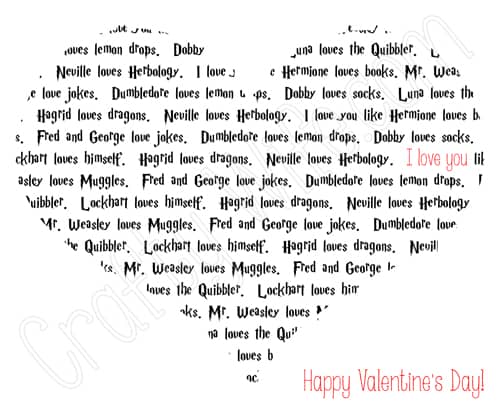 love you
loves lemon drops. Dobby una loves the Quibbler.
Neville loves Herbology. I love Hermione loves books. Mr. Weas
e love jokes. Dumbledore loves lemon ps. Dobby loves socks. Luna loves the
Hagrid loves dragons. Neville loves Herbology. I love you like Hermione loves b
s. Fred and George love jokes. Dumbledore loves lemon drops. Dobby loves socks.
ckhart loves himself. Hagrid loves dragons. Neville loves Herbology. I love you lik
asley loves Muggles. Fred and George love jokes. Dumbledore loves lemon drops.
uibbler. Lockhart loves himself. Hagrid loves dragons. Neville loves Herbology
Mr. Weasley loves Muggles. Fred and George love jokes. Dumbledore love
the Quibbler. Lockhart loves himself. Hagrid loves dragons. Nevill
ks. Mr. Weasley loves Muggles. Fred and George l
loves the Quibbler. Lockhart loves him
ks. Mr. Weasley loves M
na loves the Qui
loves b
Happy Valentine's Day!